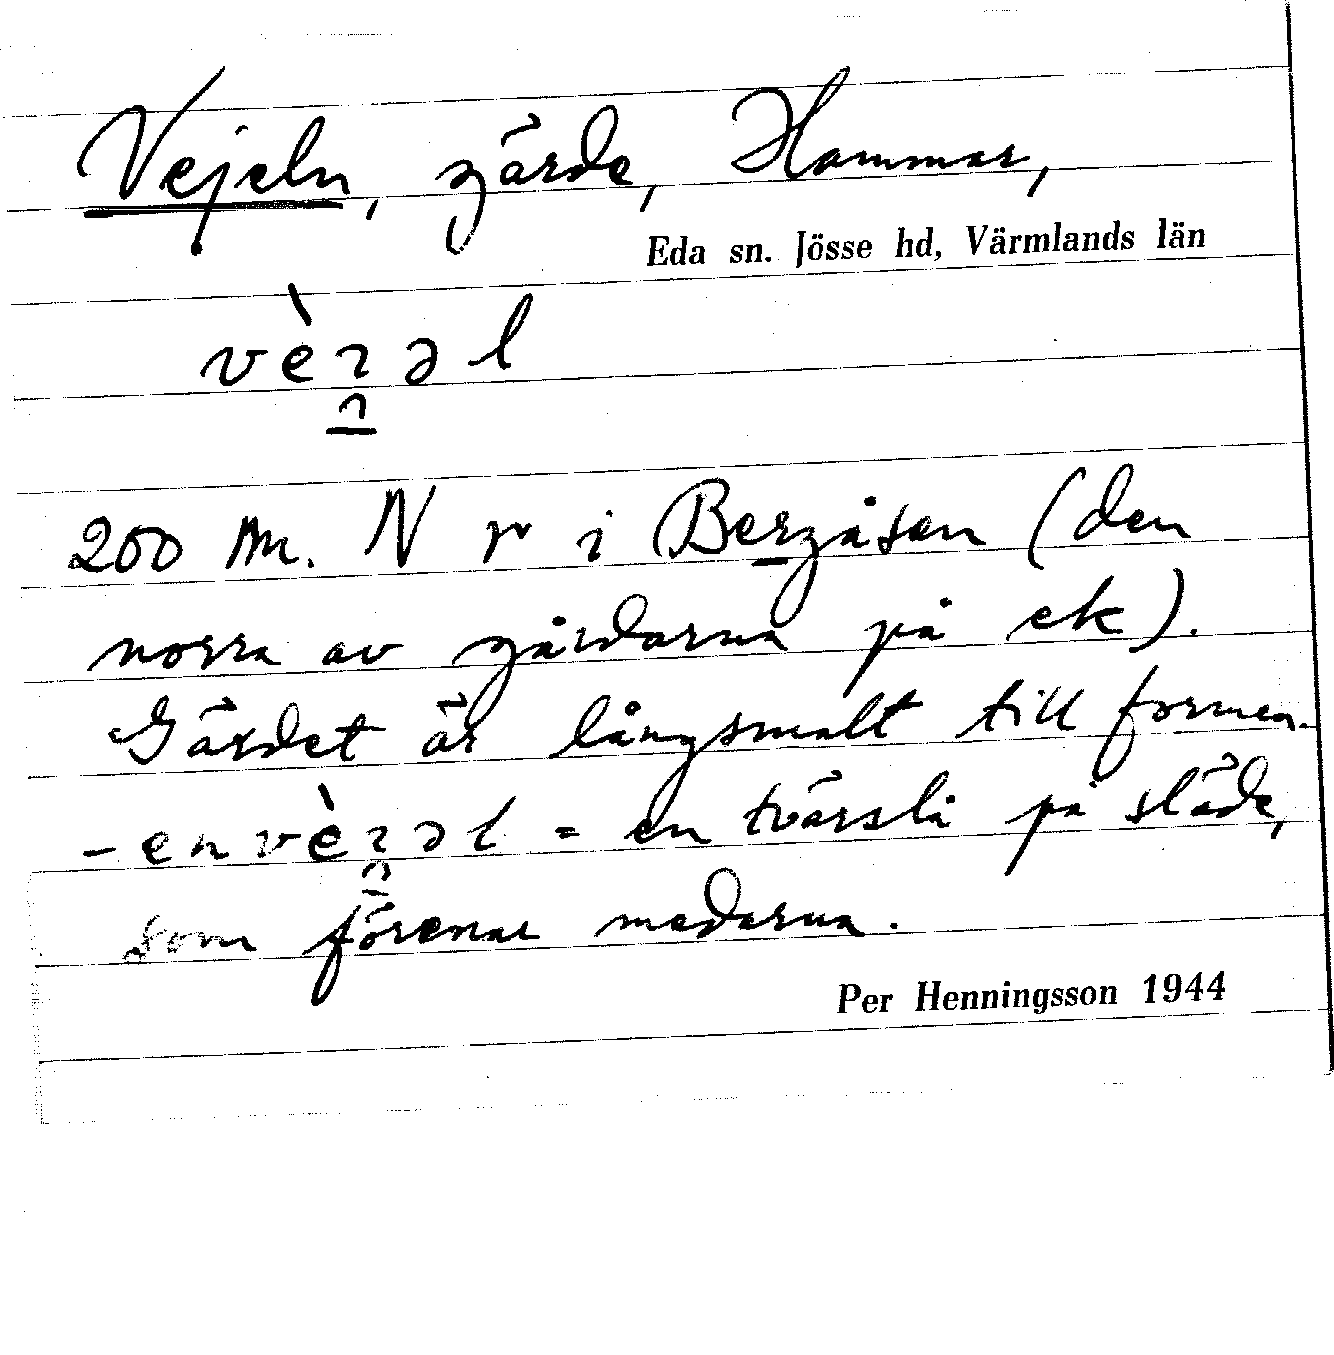 Vejeln, gärde, Hammar,
Eda sn. Jösse hd, Värmlands län
vèꝛəl
200 m. N r i Bergåsen (den
norra av gårdarna på ek).
Gärdet är långsmalt till formen.
– en vèꝛəl = en tvärslå på släde,
som förenar medarna.
Per Henningsson 1944